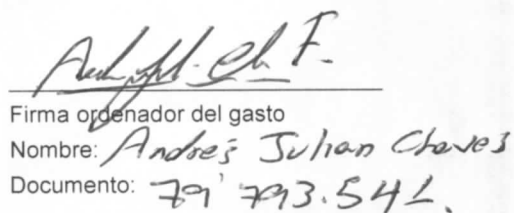 Firma ordenador del gasto
Nombre: Andres Julian Chaves
Documento: 79'793.541.